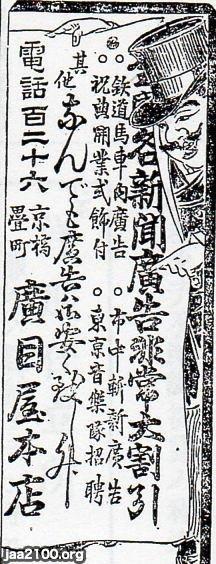 各新聞廣告非常大割引
○鉄道馬車内廣告　○市中斬新廣告
○祝典開業式飾付　○東京音樂隊招聘
其他なんでも廣告は安く致升
電話百二十六
京橋
疊町
廣目屋本店
Jaa2100.org